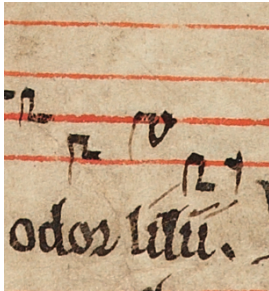 odor lilii.